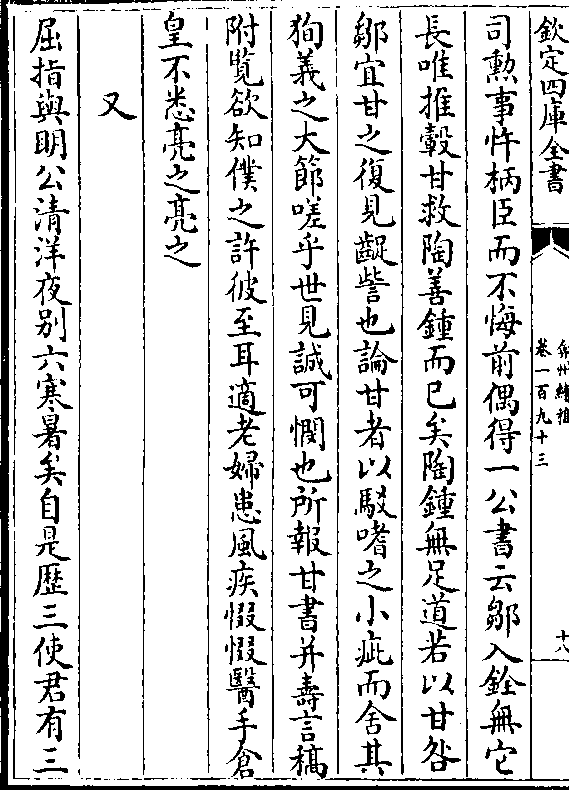 欽定四庫全書
弇州續稿
卷一百九十三
十八
司勲事忤柄臣而不悔前偶得一公書云鄒入銓無它
長唯推轂甘救陶善鍾而已矣陶鍾無足道若以甘咎
鄒宜甘之復見齮訾也論甘者以駁嗜之小疵而舍其
狥義之大節嗟乎世見誠可憫也所報甘書并壽言稿
附覧欲知僕之許彼至耳適老婦患風疾惙惙醫手倉
皇不悉亮之亮之
又
屈指與明公清洋夜别六寒暑矣自是歴三使君有三